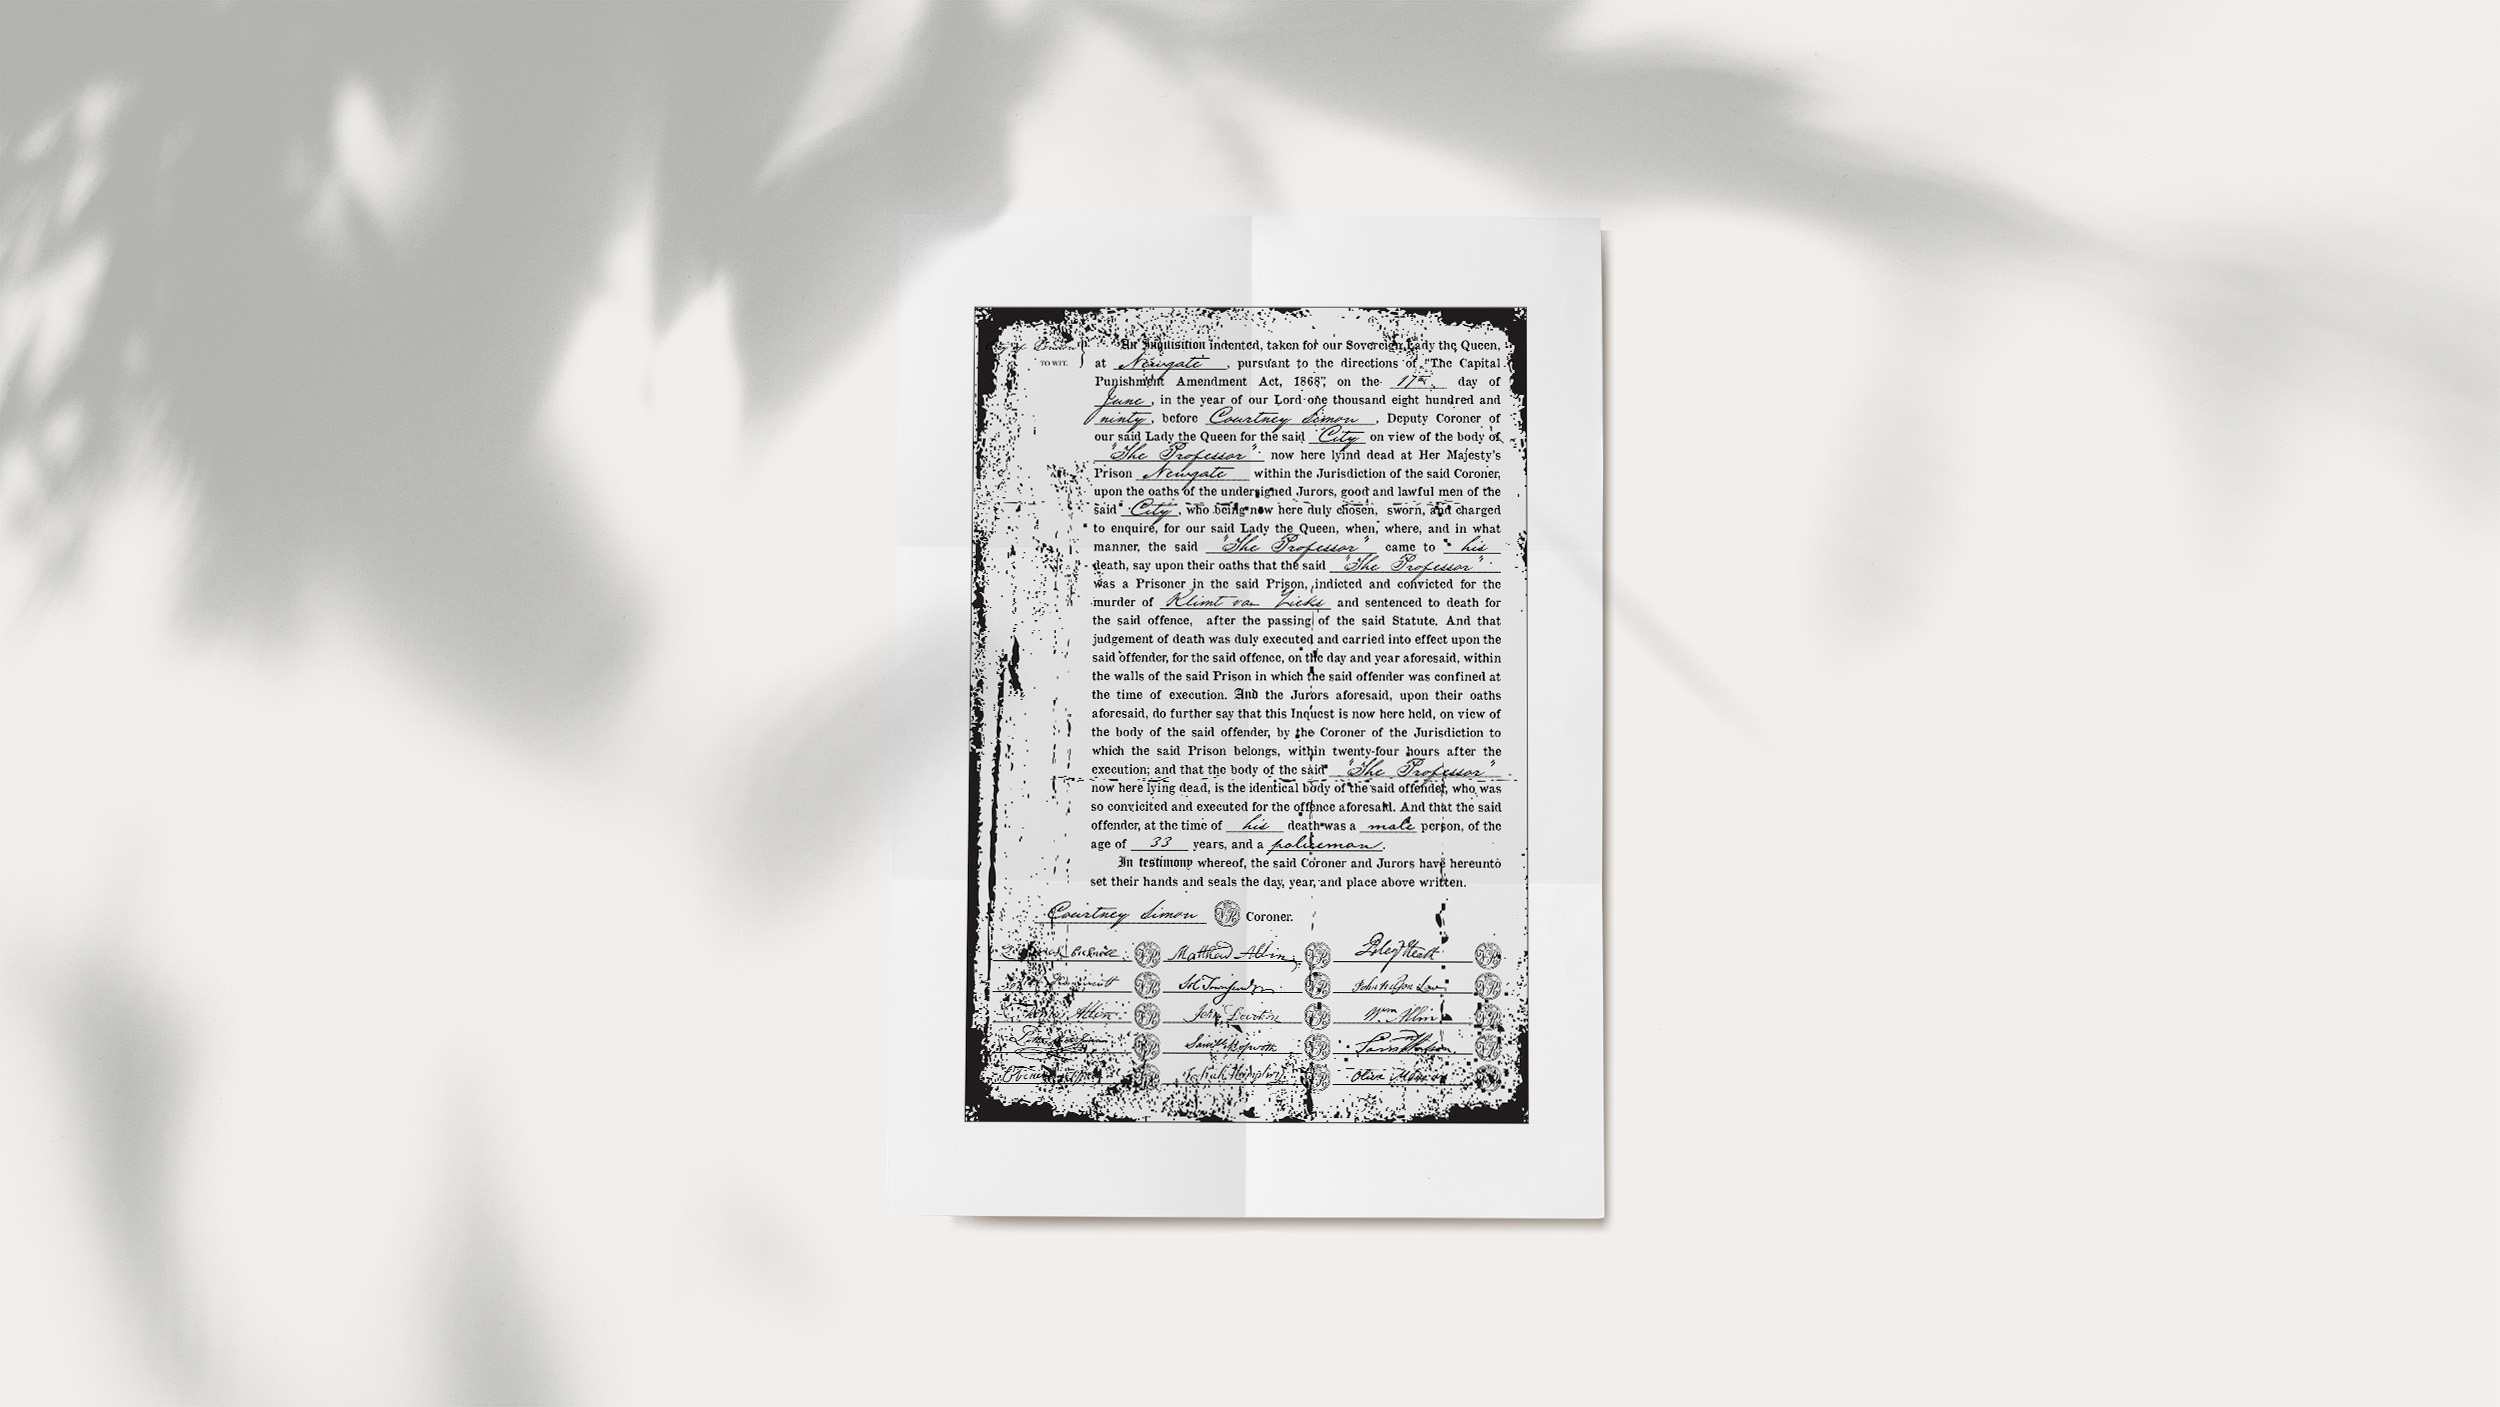 City of London
An Inquisition indented, taken for our Sovereign Lady the Queen,
TO WIT.
at Newgate, pursuant to the directions of "The Capital
Punishment Amendment Act, 1868", on the 17th day of
June, in the year of our Lord one thousand eight hundred and
ninty, before Courtney Simon, Deputy Coroner of
our said Lady the Queen for the said City on view of the body of
"The Professor" now here lyind dead at Her Majesty's
Prison Newgate within the Jurisdiction of the said Coroner,
upon the oaths of the undersigned Jurors, good and lawful men of the
said City, who being now here duly chosen, sworn, and charged
to enquire, for our said Lady the Queen, when, where, and in what
manner, the said "The Professor" came to his
death, say upon their oaths that the said "The Professor"
was a Prisoner in the said Prison, indicted and convicted for the
murder of Klimt van Zieks and sentenced to death for
the said offence, after the passing of the said Statute. And that
judgement of death was duly executed and carried into effect upon the
said offender, for the said offence, on the day and year aforesaid, within
the walls of the said Prison in which the said offender was confined at
the time of execution. And the Jurors aforesaid, upon their oaths
aforesaid, do further say that this Inquest is now here held, on view of
the body of the said offender, by the Coroner of the Jurisdiction to
which the said Prison belongs, within twenty-four hours after the
execution; and that the body of the said "The Professor"
now here lying dead, is the identical body of the said offender, who was
so convicited and executed for the offence aforesaid. And that the said
offender, at the time of his death was a male person, of the
age of 33 years, and a policeman.
In testimony whereof, the said Coroner and Jurors have hereunto
set their hands and seals the day, year, and place above written.
Courtney Simon VR Coroner.
VR Matthew Allin VR VR
VR VR John VR
Allin VR John VR Wm Allin VR
VR Saml VR VR
VR VR VR